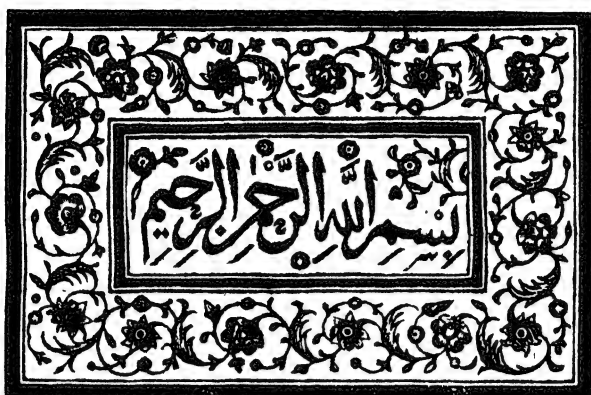 بِسْمِ اللَّهِ الرَّحْمَٰنِ الرَّحِيمِ